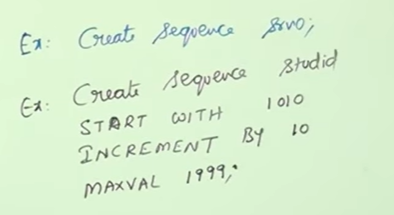 Ex: Create Sequence Srno;
Ex: Create Sequence Studid
START WITH 1010
INCREMENT By 10
MAXVAL 1999;